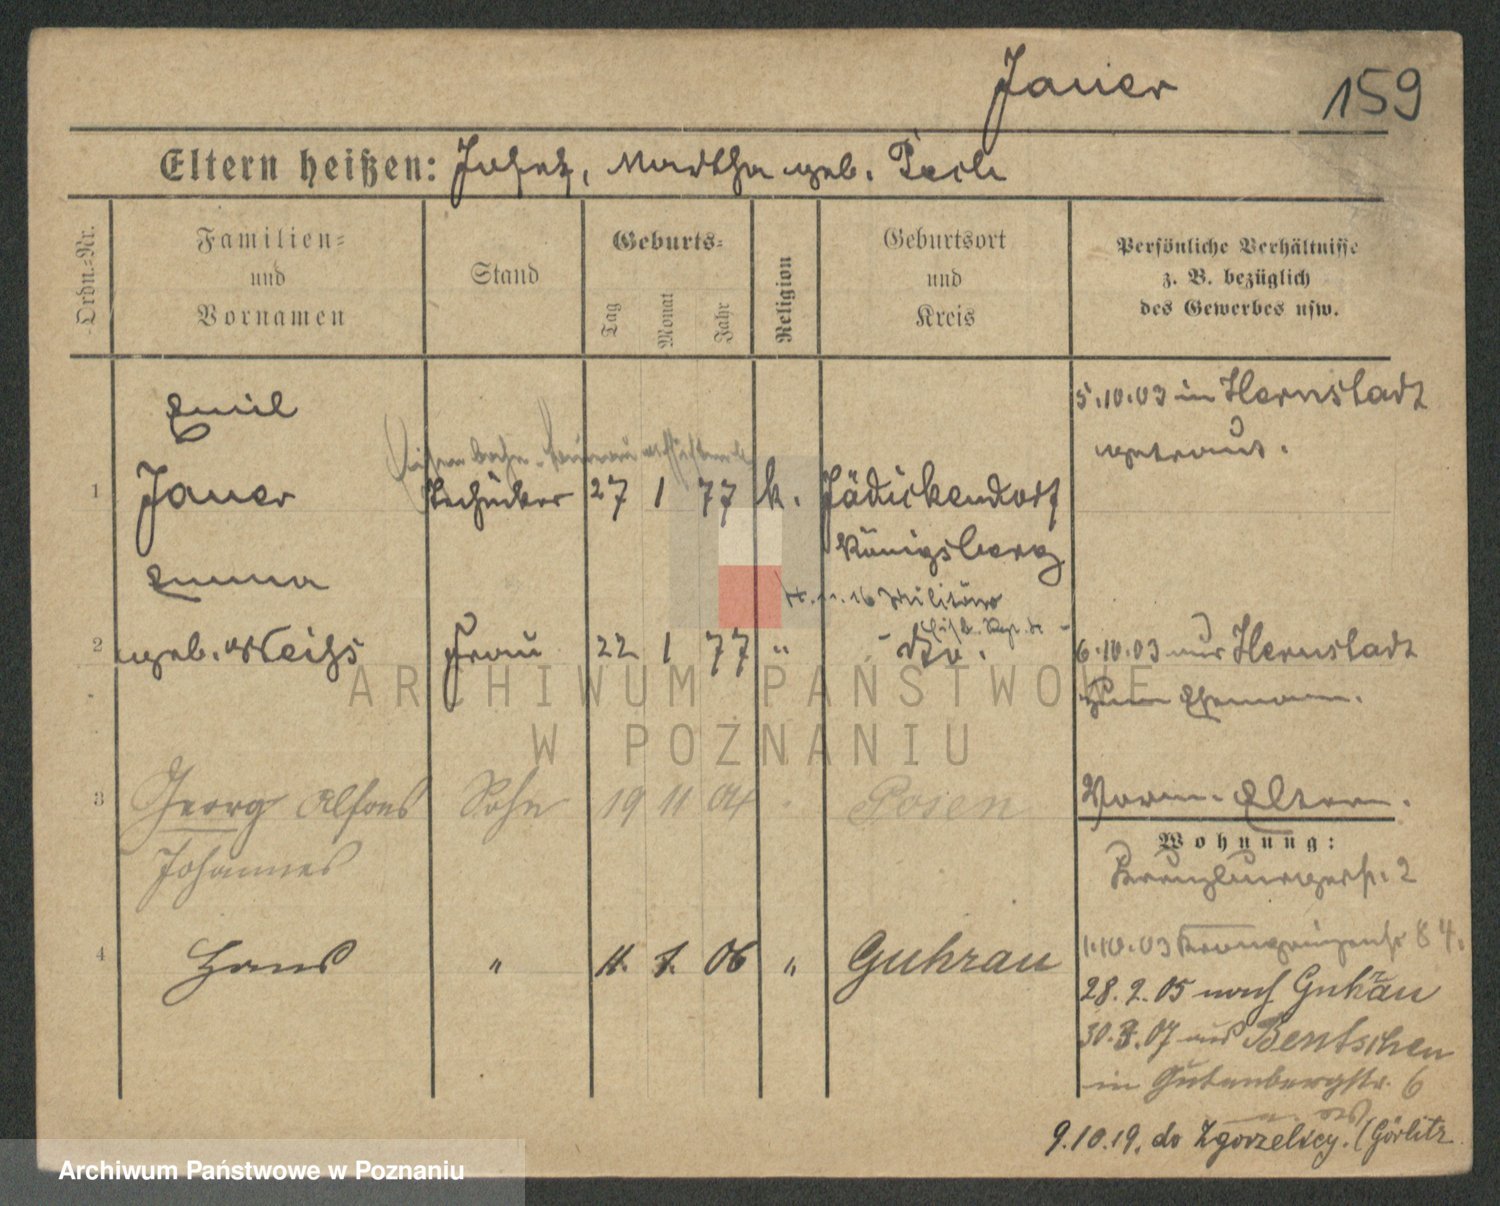 Jauer 159
Eltern heißen: Josef, Martha geb. Pech
Ordn.-Nr.
Familien- und Vornamen
Stand
Geburts-
Tag Monat Jahr
Religion
Geburtsort und Kreis
Persönliche Verhältnisse
z. B. bezüglich
des Gewerbes usw.
Emil
5.10.03 in Hernstadt
getraut.
1 Jauer Techniker 27 1 77 k. Jädickendorf
Königsberg
Emma
2 geb. Weihs Frau 22 1 77 "
6.10.03 aus Hernstadt
zum Ehemann.
3 Georg Alfons Sohn 19 11 04 Posen
Vorm. Eltern.
Johannes
Wohnung:
4 Hans " 11. 7. 06 " Guhrau
1.10.03 84.
28.2.05 nach Guhrau
30.3.07 aus Bentschen
in Gutenbergstr. 6
9.10.19. do Zgorzelicy. (Görlitz
ARCHIWUM PAŃSTWOWE
W POZNANIU
Archiwum Państwowe w Poznaniu